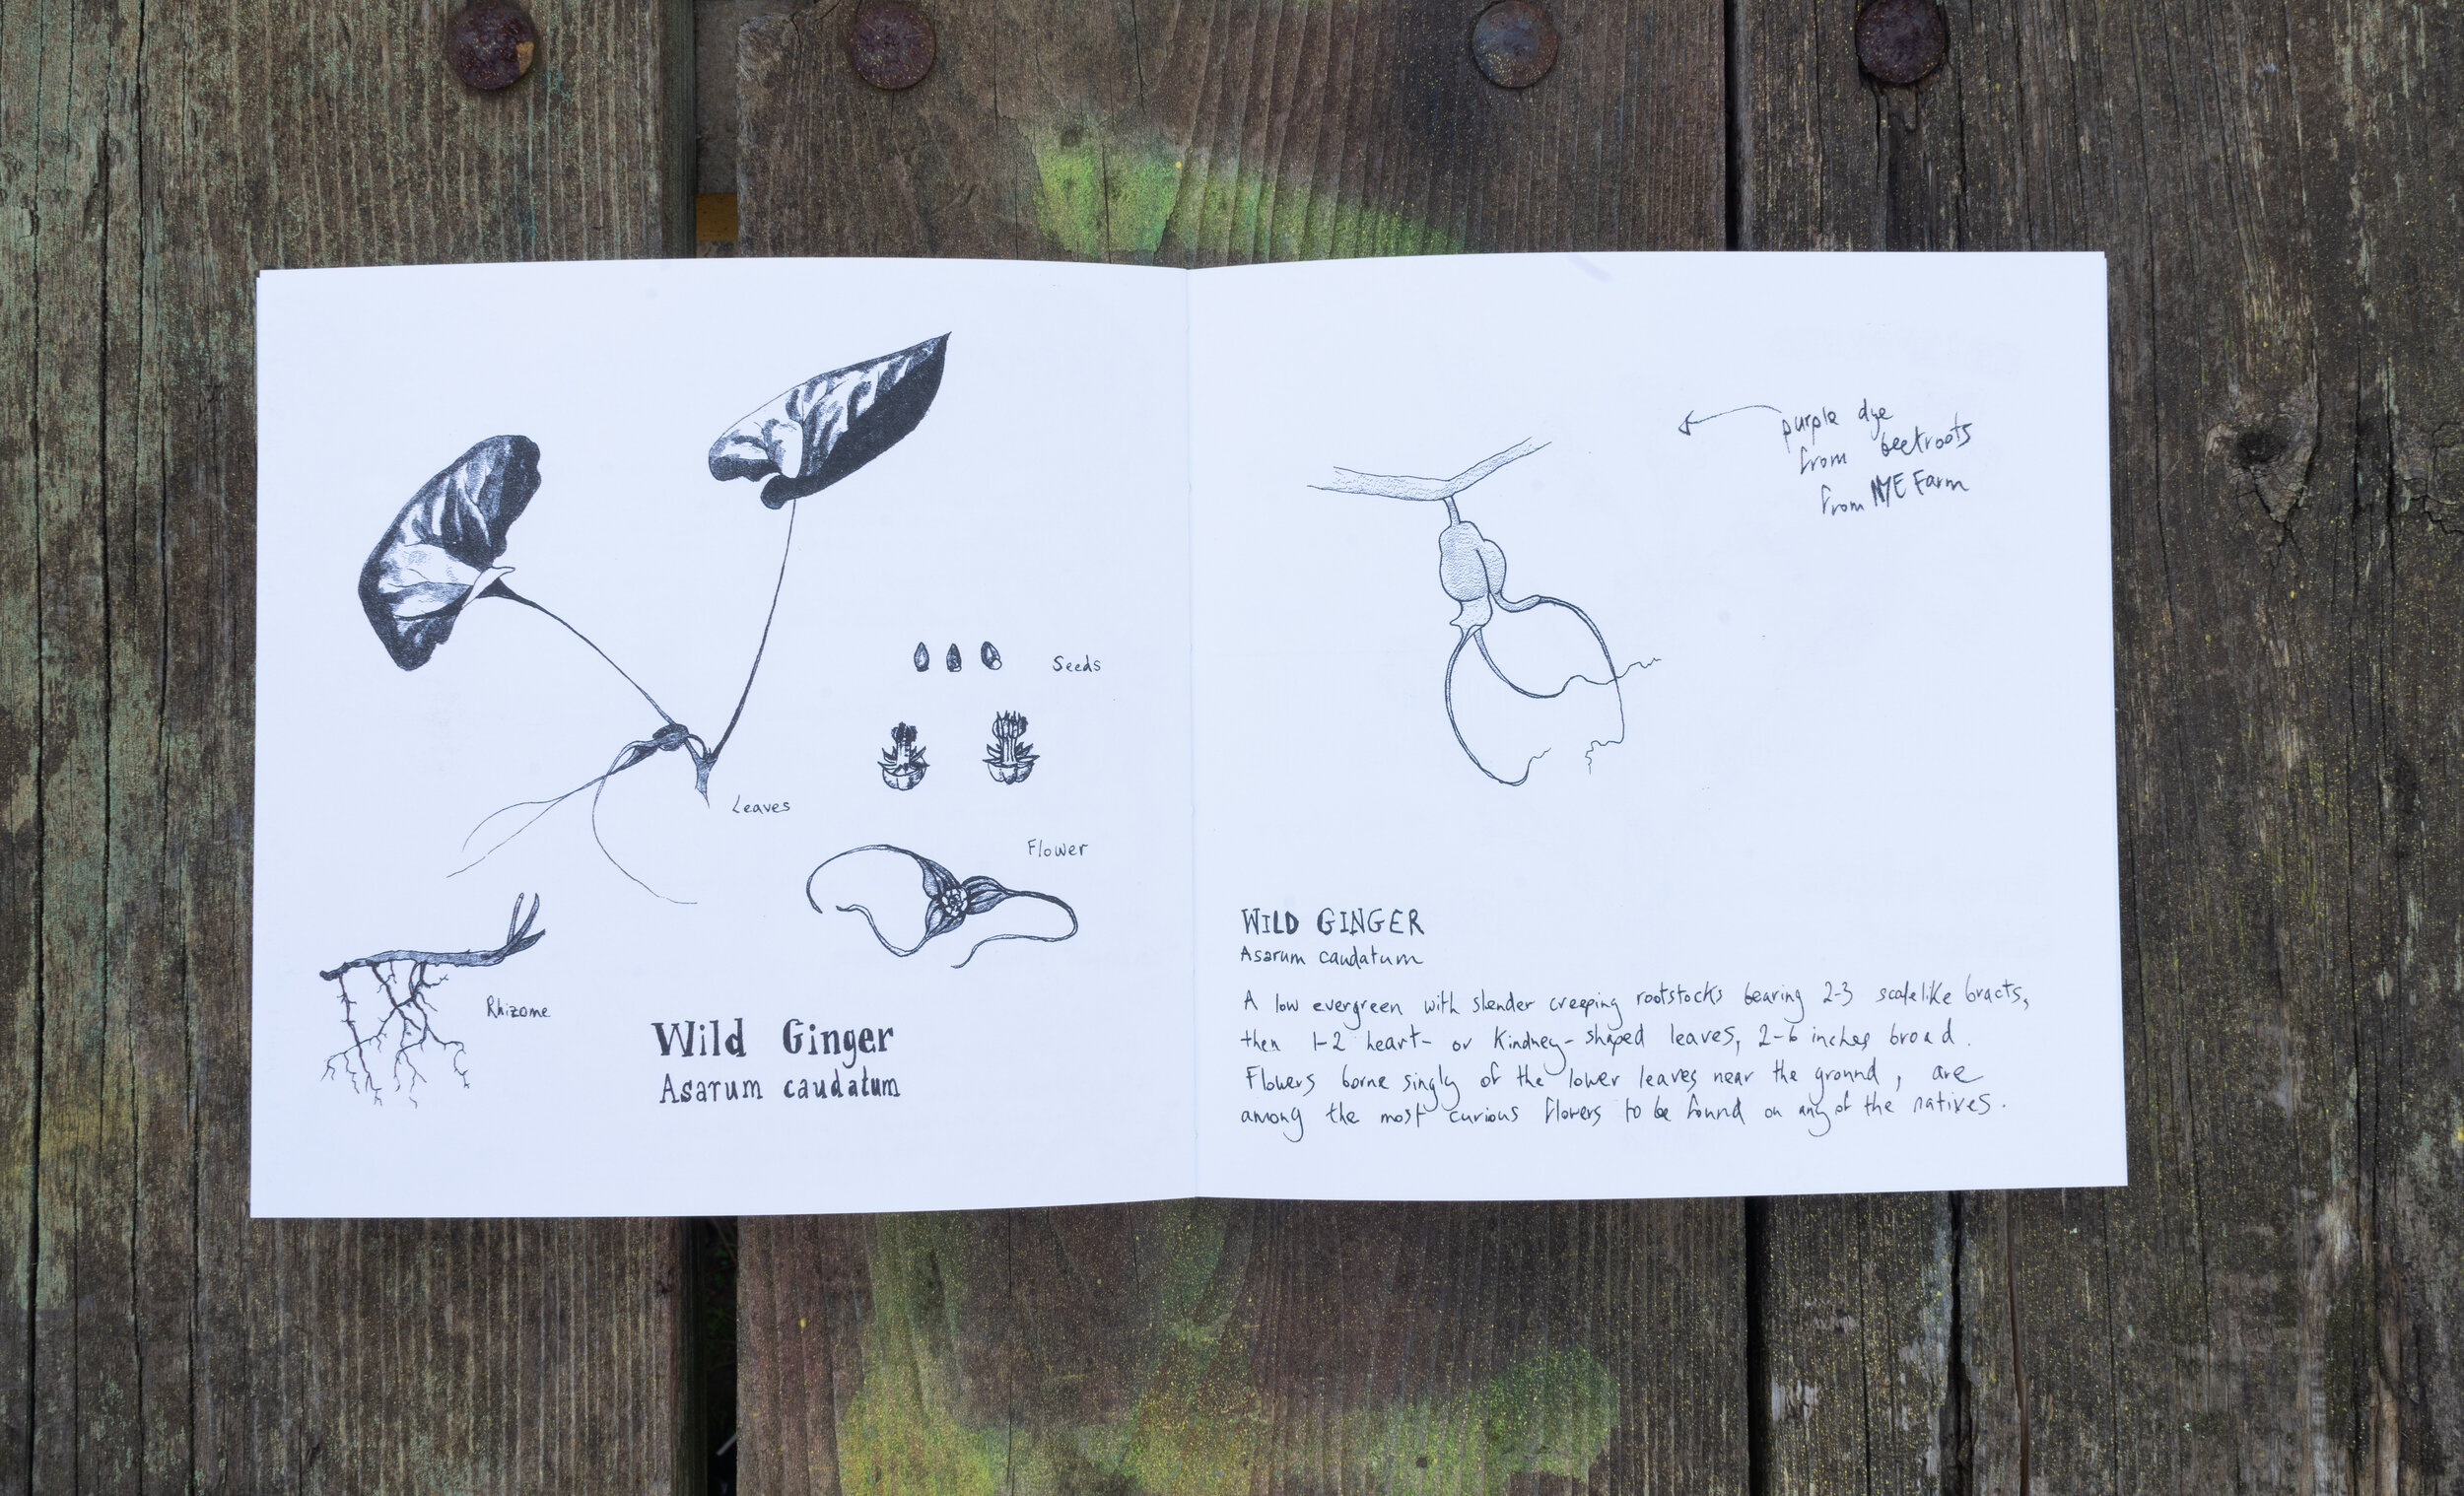 Seeds
Leaves
Flower
Rhizome
Wild Ginger
Asarum caudatum
purple dye
from beetroots
from NYE Farm
WILD GINGER
Asarum caudatum
A low evergreen with slender creeping rootstocks bearing 2-3 scalelike bracts,
then 1-2 heart- or kidney-shaped leaves, 2-6 inches broad.
Flowers borne singly of the lower leaves near the ground, are
among the most curious flowers to be found on any of the natives.